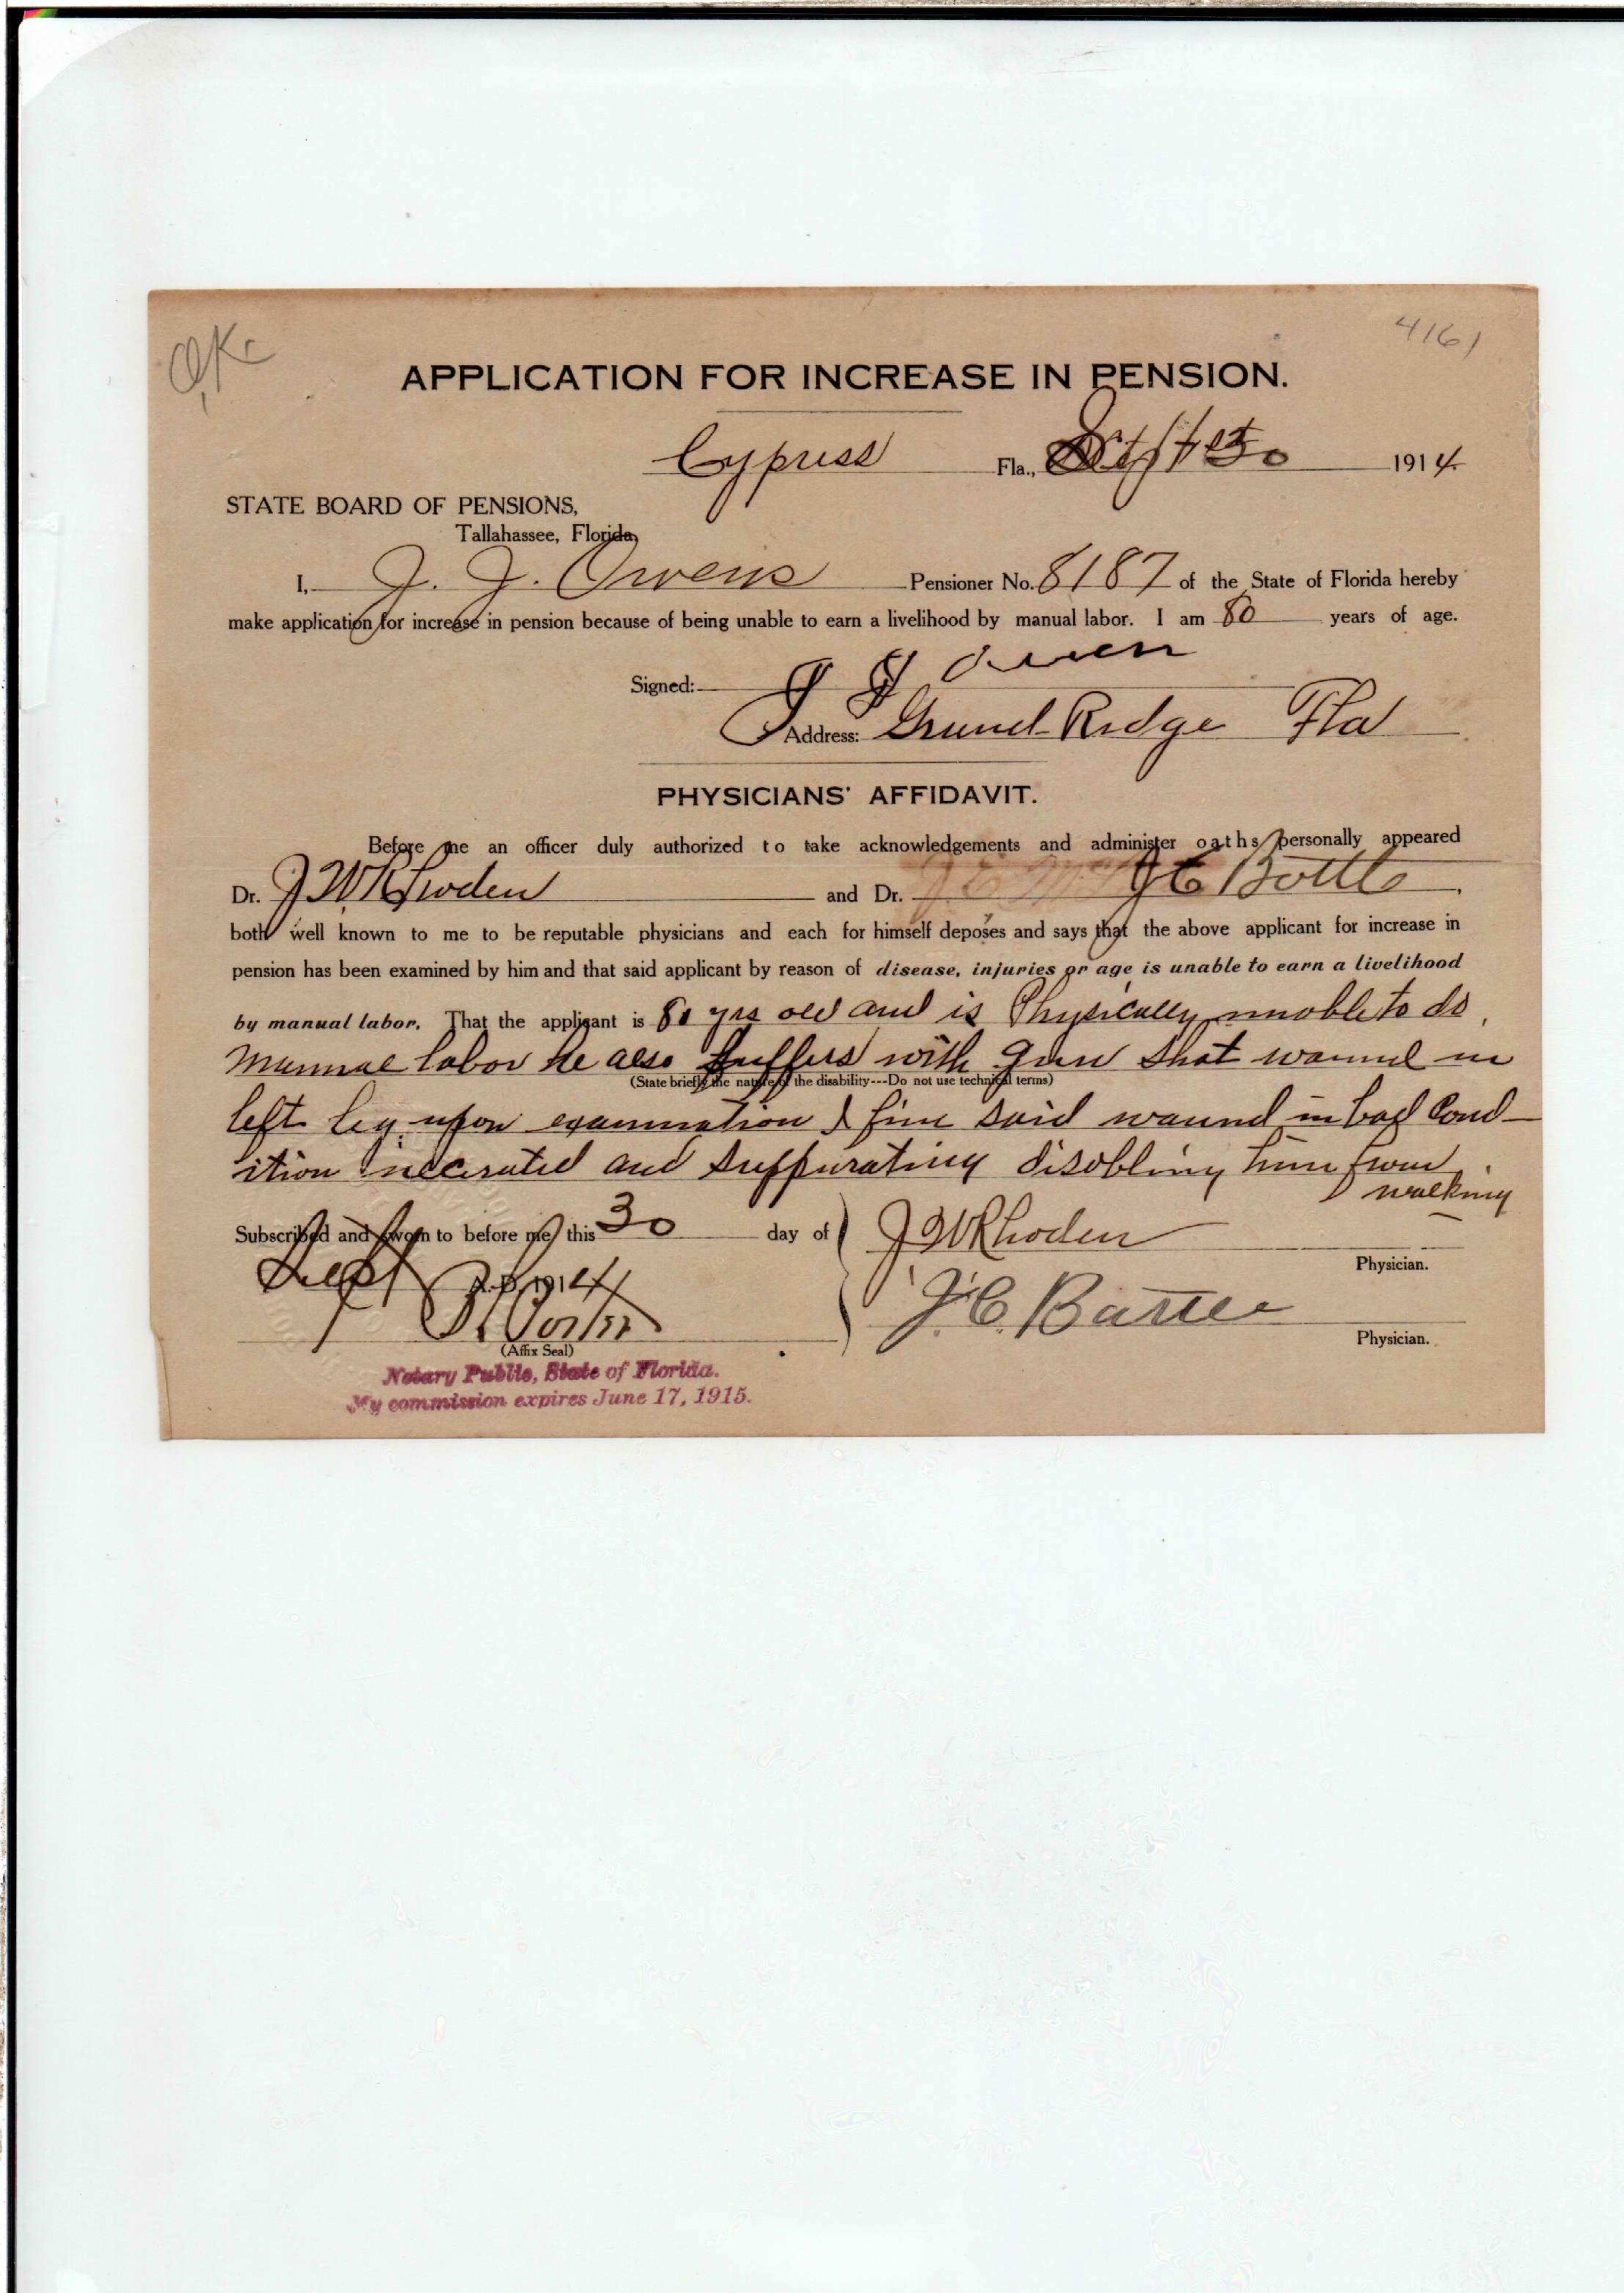 O.K.
4161
APPLICATION FOR INCREASE IN PENSION.
Cypress Fla., Sept 30 1914
STATE BOARD OF PENSIONS,
Tallahassee, Florida,
I, J. J. Owens Pensioner No. 8187 of the State of Florida hereby
make application for increase in pension because of being unable to earn a livelihood by manual labor. I am 80 years of age.
Signed: J J Owen
Address: Grand Ridge Fla
PHYSICIANS' AFFIDAVIT.
Before me an officer duly authorized to take acknowledgements and administer oaths personally appeared
Dr. J W Rhoden and Dr. J C
both well known to me to be reputable physicians and each for himself deposes and says that the above applicant for increase in
pension has been examined by him and that said applicant by reason of disease, injuries or age is unable to earn a livelihood
by manual labor. That the applicant is 80 yrs old and is Physically unable to do
manual labor he also suffers with gun shot wound in
(State briefly the nature of the disability---Do not use technical terms)
left leg upon examination I find said wound in bad Cond-
ition and suppurating disabling him from
walking
Subscribed and sworn to before me this 30 day of
Sept A. D. 1914
J W Rhoden
Physician.
J. C.
Physician.
(Affix Seal)
Notary Public, State of Florida.
My commission expires June 17, 1915.